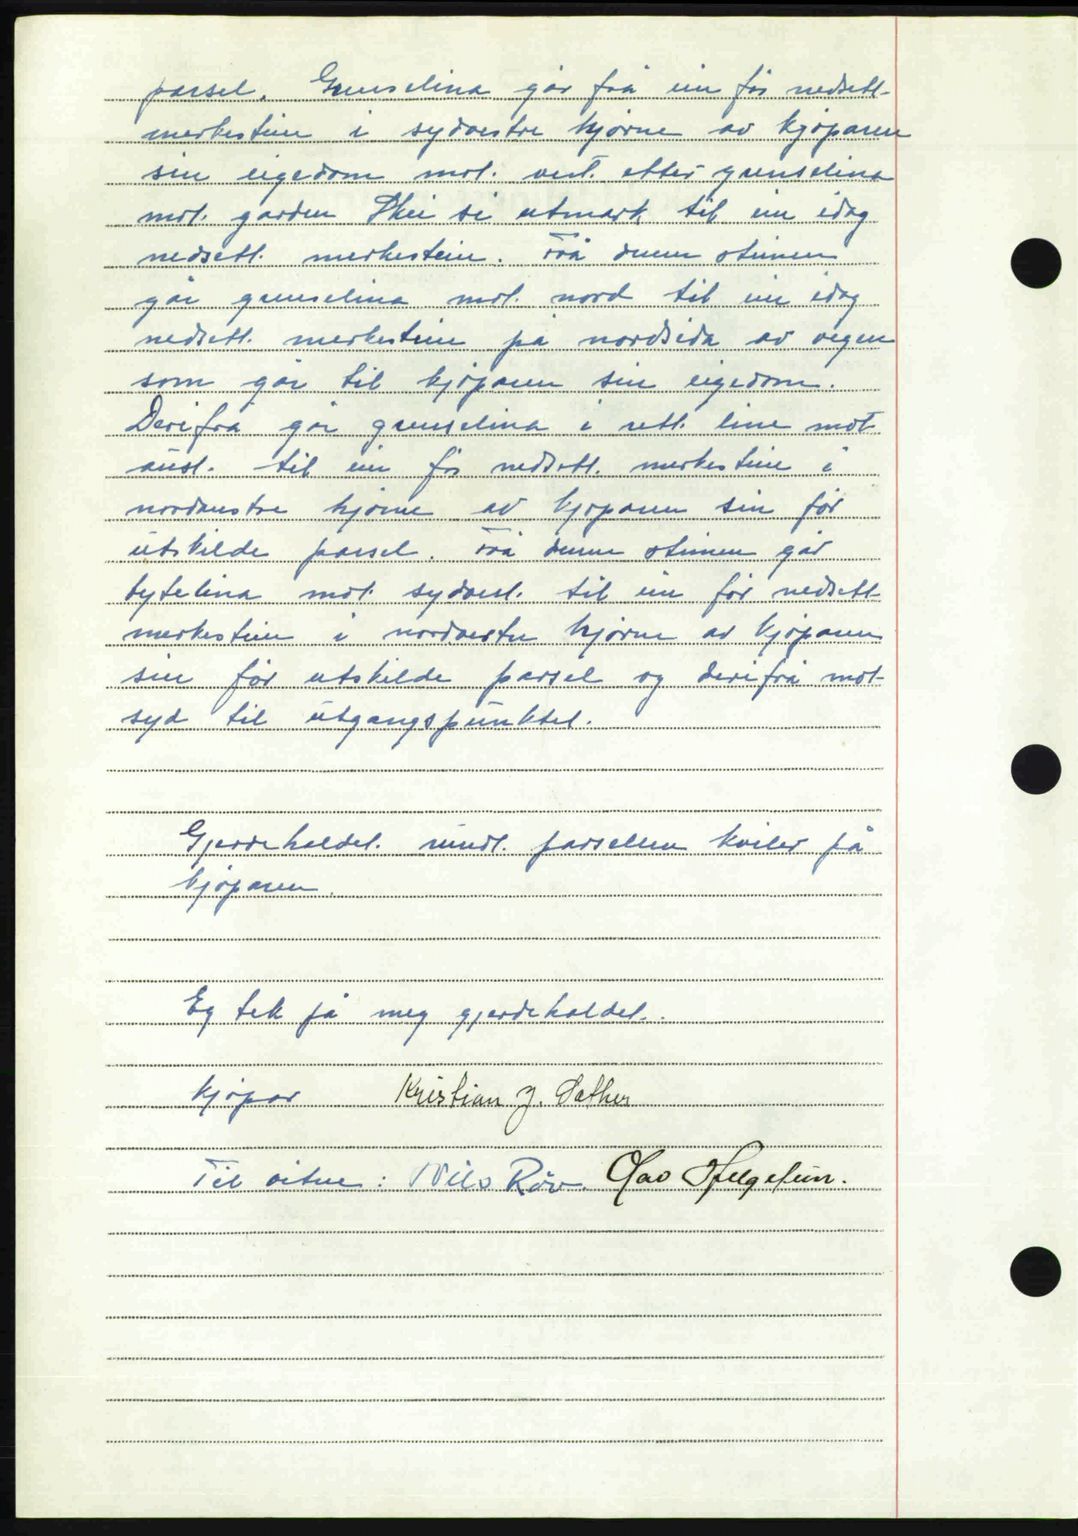 parsel. Grenselina går frå ein før nedsett
merkestein i sydvestre hjørne av kjøparen
sin eigedom mot vest etter grenselina
mot garden Skei si utmark til ein idag
nedsett merkestein. Frå denne steinen
går grenselina mot nord til ein idag
nedsett merkestein på nordsida av vegen
som går til kjøparen sin eigedom.
Derifrå går grenselina i rett line mot
aust til ein før nedsett merkestein i
nordaustre hjørne av kjøparen sin før
utskilde parsel. Frå denne steinen går
bytelina mot sydvest til ein før nedsett
merkestein i nordvestre hjørne av kjøparen
sin før utskilde parsel og derifrå mot
syd til utgangspunktet.
Gjerdehaldet rundt parsellen kviler på
kjøparen.
Eg tek på meg gjerdehaldet.
kjøpar Kristian J. Sæther
Til vitne: Nils Røv. Olav Helgetun.